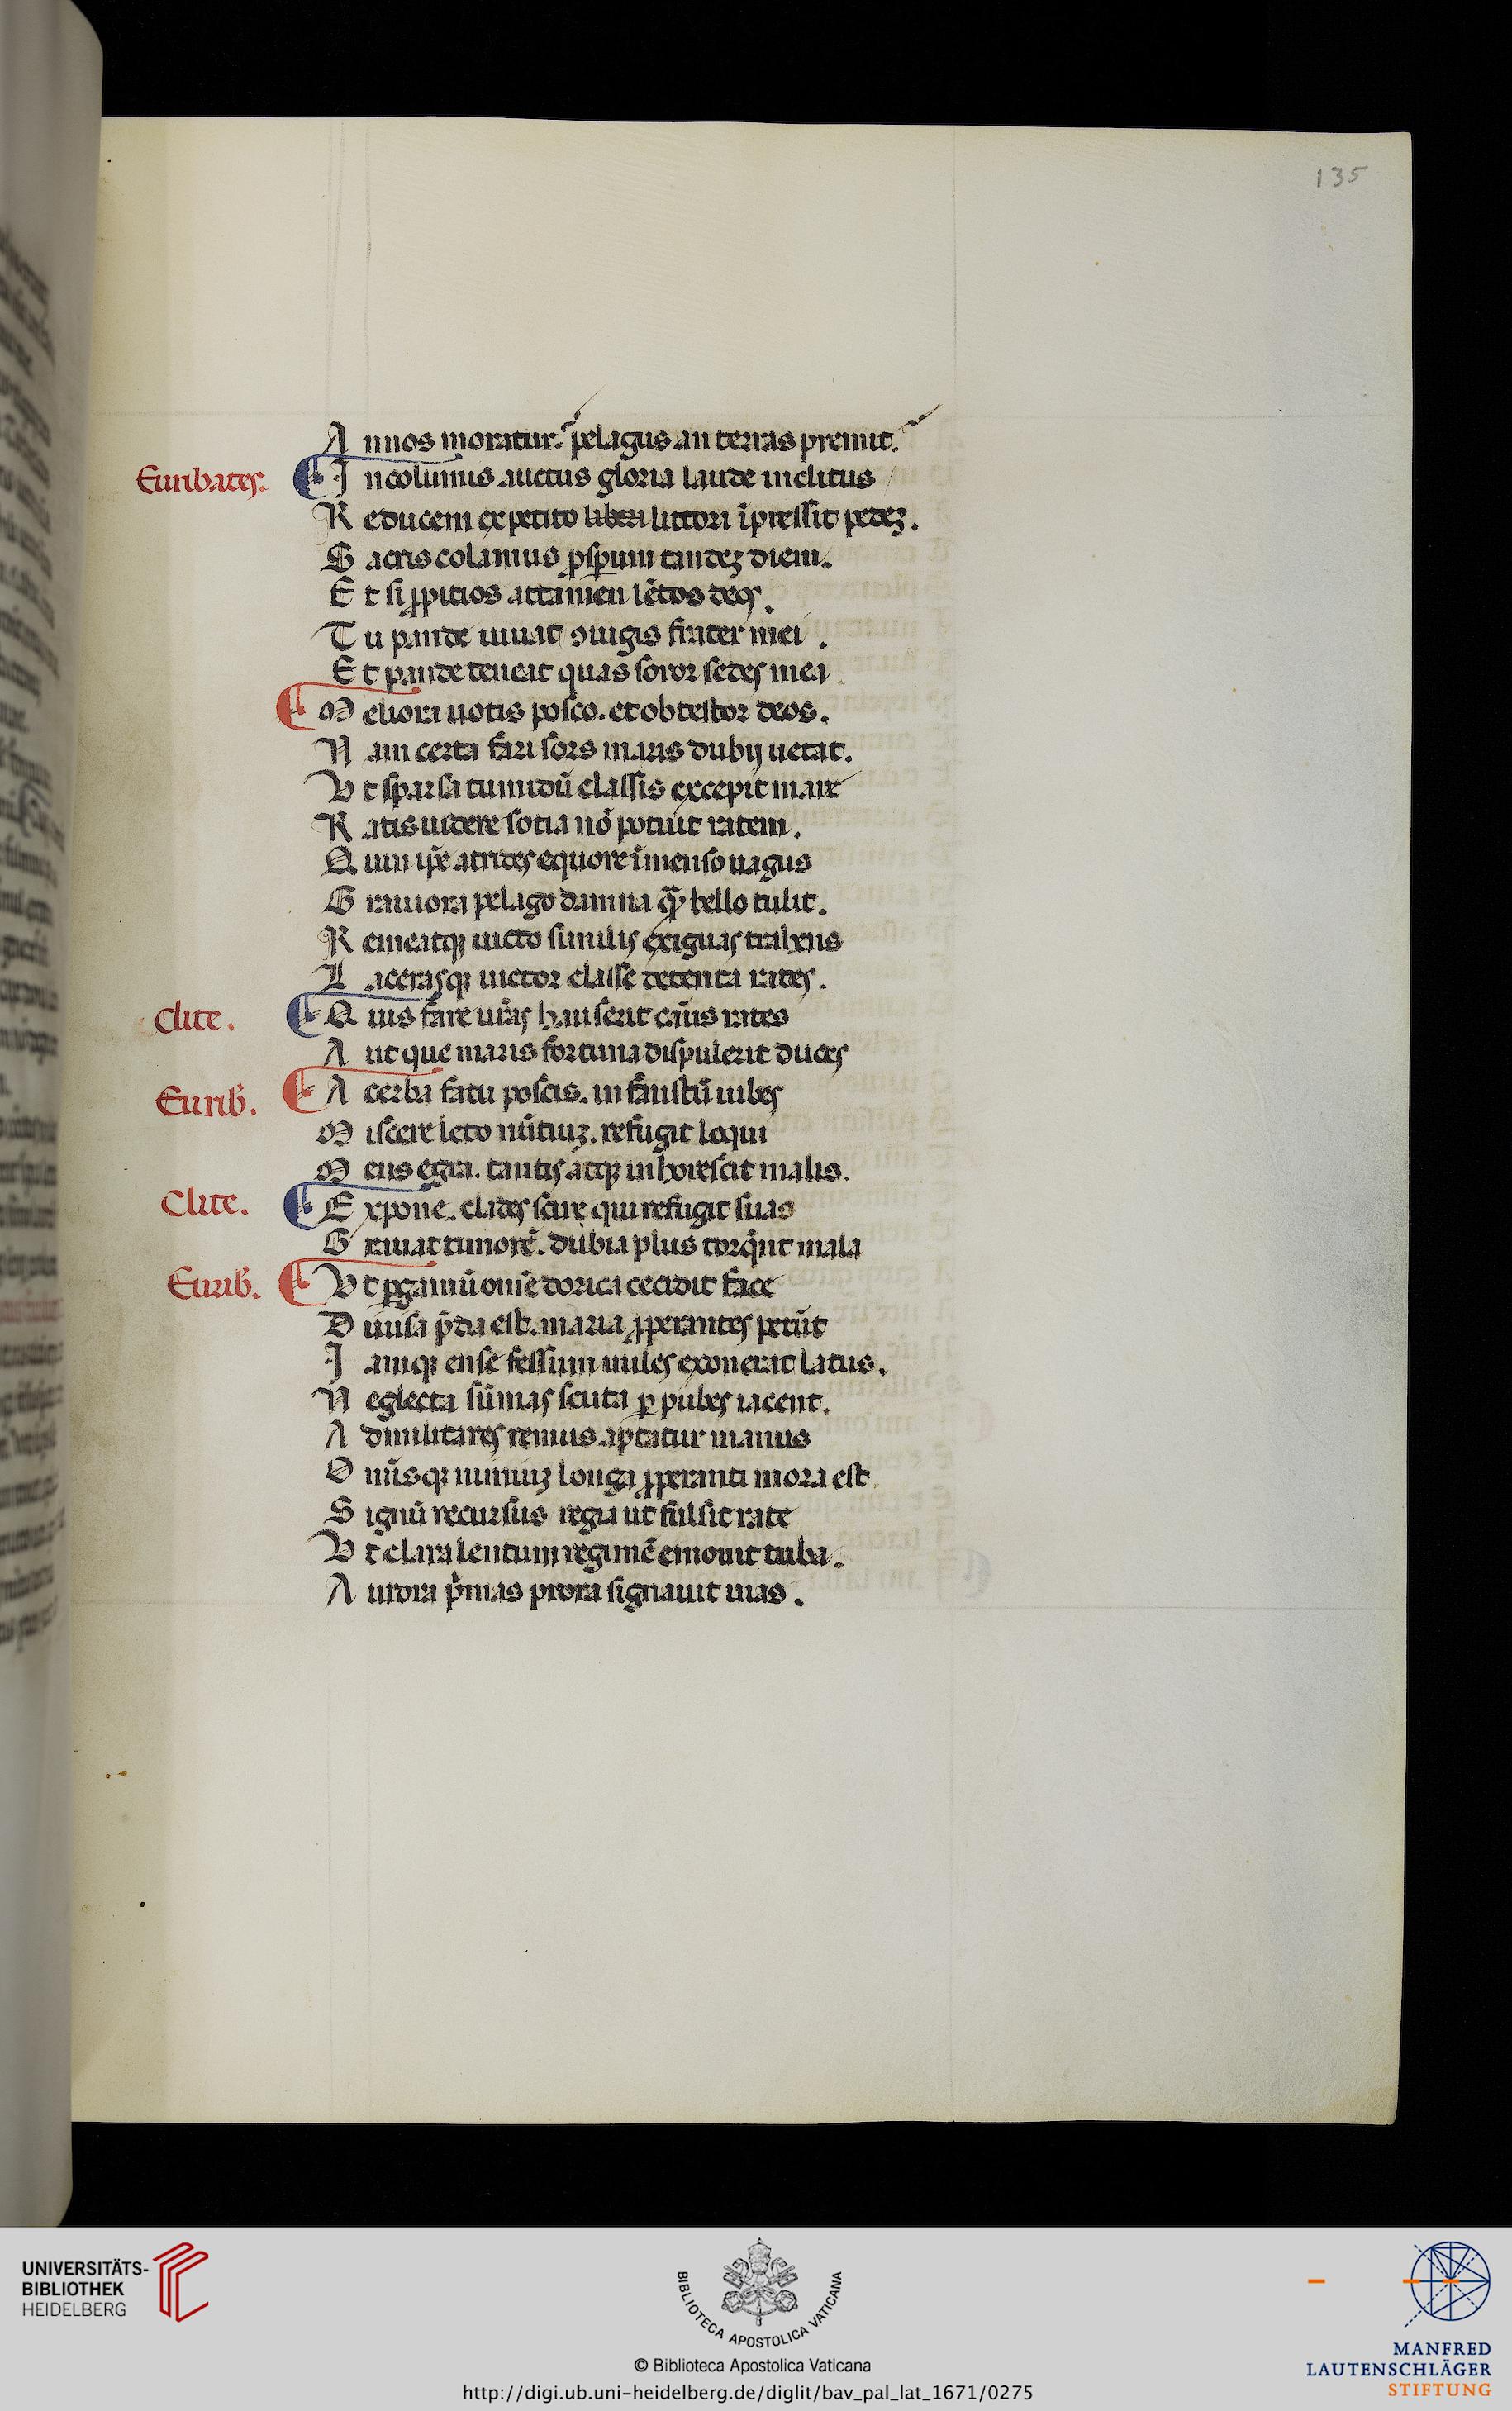 135
A nnos moratur. pelagus an terras premit.
Euribates. I ncolumis auctus gloria laude inclitus
R educem expetito liberi littori īpressit pedeʒ.
S acris colamus ꝓsꝑum tandeʒ diem.
E t si ꝓpitios attamen lētos deos.
T u pande uiuat ꝯiugis frater mei .
E t pande teneat quas soror sedes mea
M eliora uotis posco. et obtestor deos.
N am certa fari sors maris dubij uetat.
V t sparsa tumidū classis excepit mare
R atis uidere sotia nō potuit ratem.
Q uin ip̄e atrides equore īmenso uagus
G rauiora pelago damna q̄ bello tulit.
R emeatqꝫ uicto similis exiguas trahens
L acerasqꝫ uictor classe detenta rates.
Clite. Q uis fare ur̄as hauserit casus rates
A ut que maris fortuna dispulerit duces
Eurib. A cerba fatu poscis. infaustū iubes
M iscere leto nūtiuʒ. refugit loqui
M ens egra. tantis atqꝫ inhorescit malis.
Clite. E xpone. clades scire qui refugit suas
G rauat timorē. dubia plus torq̄nt mala
Eurib. V t ꝑgamū om̄e dorica cecidit face
D iuisa p̄da est. maria ꝓperantes petūt
I amqꝫ ense fessum miles exonerat latus.
N eglecta sūmas scuta ꝑ pubes iacent.
A d militares remus aptatur manus
O m̄isqꝫ nimiuʒ longa ꝓperanti mora est
S ignū recursus regia ut fulsit rate
V t clara lentum regimē emouit tuba.
A urora p̄mas prora signauit uias .
UNIVERSITÄTS-
BIBLIOTHEK
HEIDELBERG
BIBLIOTECA APOSTOLICA VATICANA
© Biblioteca Apostolica Vaticana
http://digi.ub.uni-heidelberg.de/diglit/bav_pal_lat_1671/0275
MANFRED
LAUTENSCHLÄGER
STIFTUNG